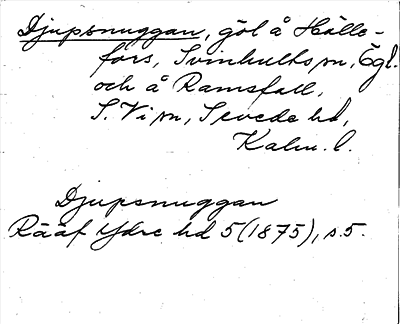 Djupsnuggan, göl å Hälle-
fors, Svinhults sn, Ögl.
och å Ramsfall,
S. Vi sn, Sevede hd,
Kalm. l.
Djupsnuggan
Rääf Ydre hd 5 (1875), s. 5.